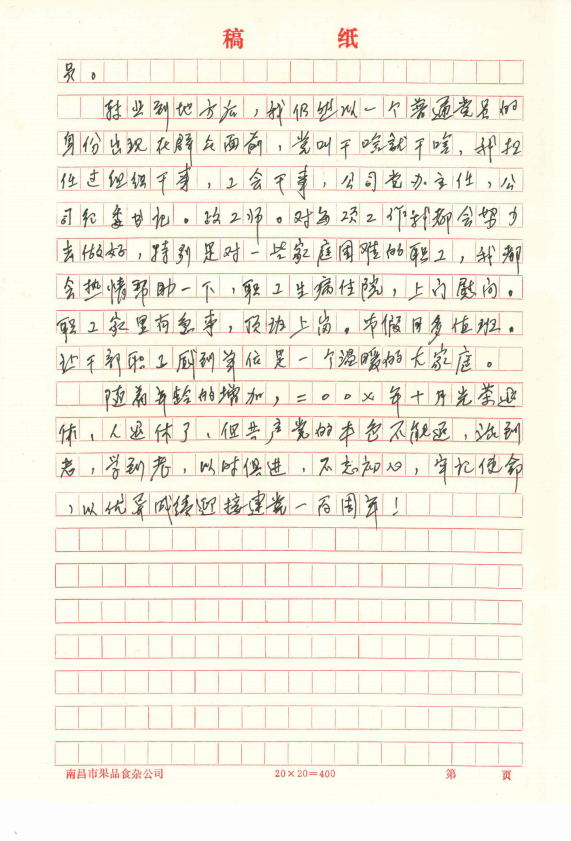 稿 纸
员。
转业到地方后，我仍然以一个普通党员的
身份出现在群众面前，党叫干啥就干啥，我担
任过组织干事，工会干事，公司党办主任，公
司纪委书记。政工师。对每项工作我都会努力
去做好，特别是对一些家庭困难的职工，我都
会热情帮助一下，职工生病住院，上门慰问。
职工家里有急事，顶班上岗。节假日多值班。
让干部职工感到单位是一个温暖的大家庭。
随着年龄的增加，二〇〇年十月光荣退
休，人退休了，但共产党的本色不能退，活到
老，学到老，以时俱进，不忘初心，牢记使命
，以优异成绩迎接建党一百周年！
南昌市果品食杂公司 20×20=400 第 页